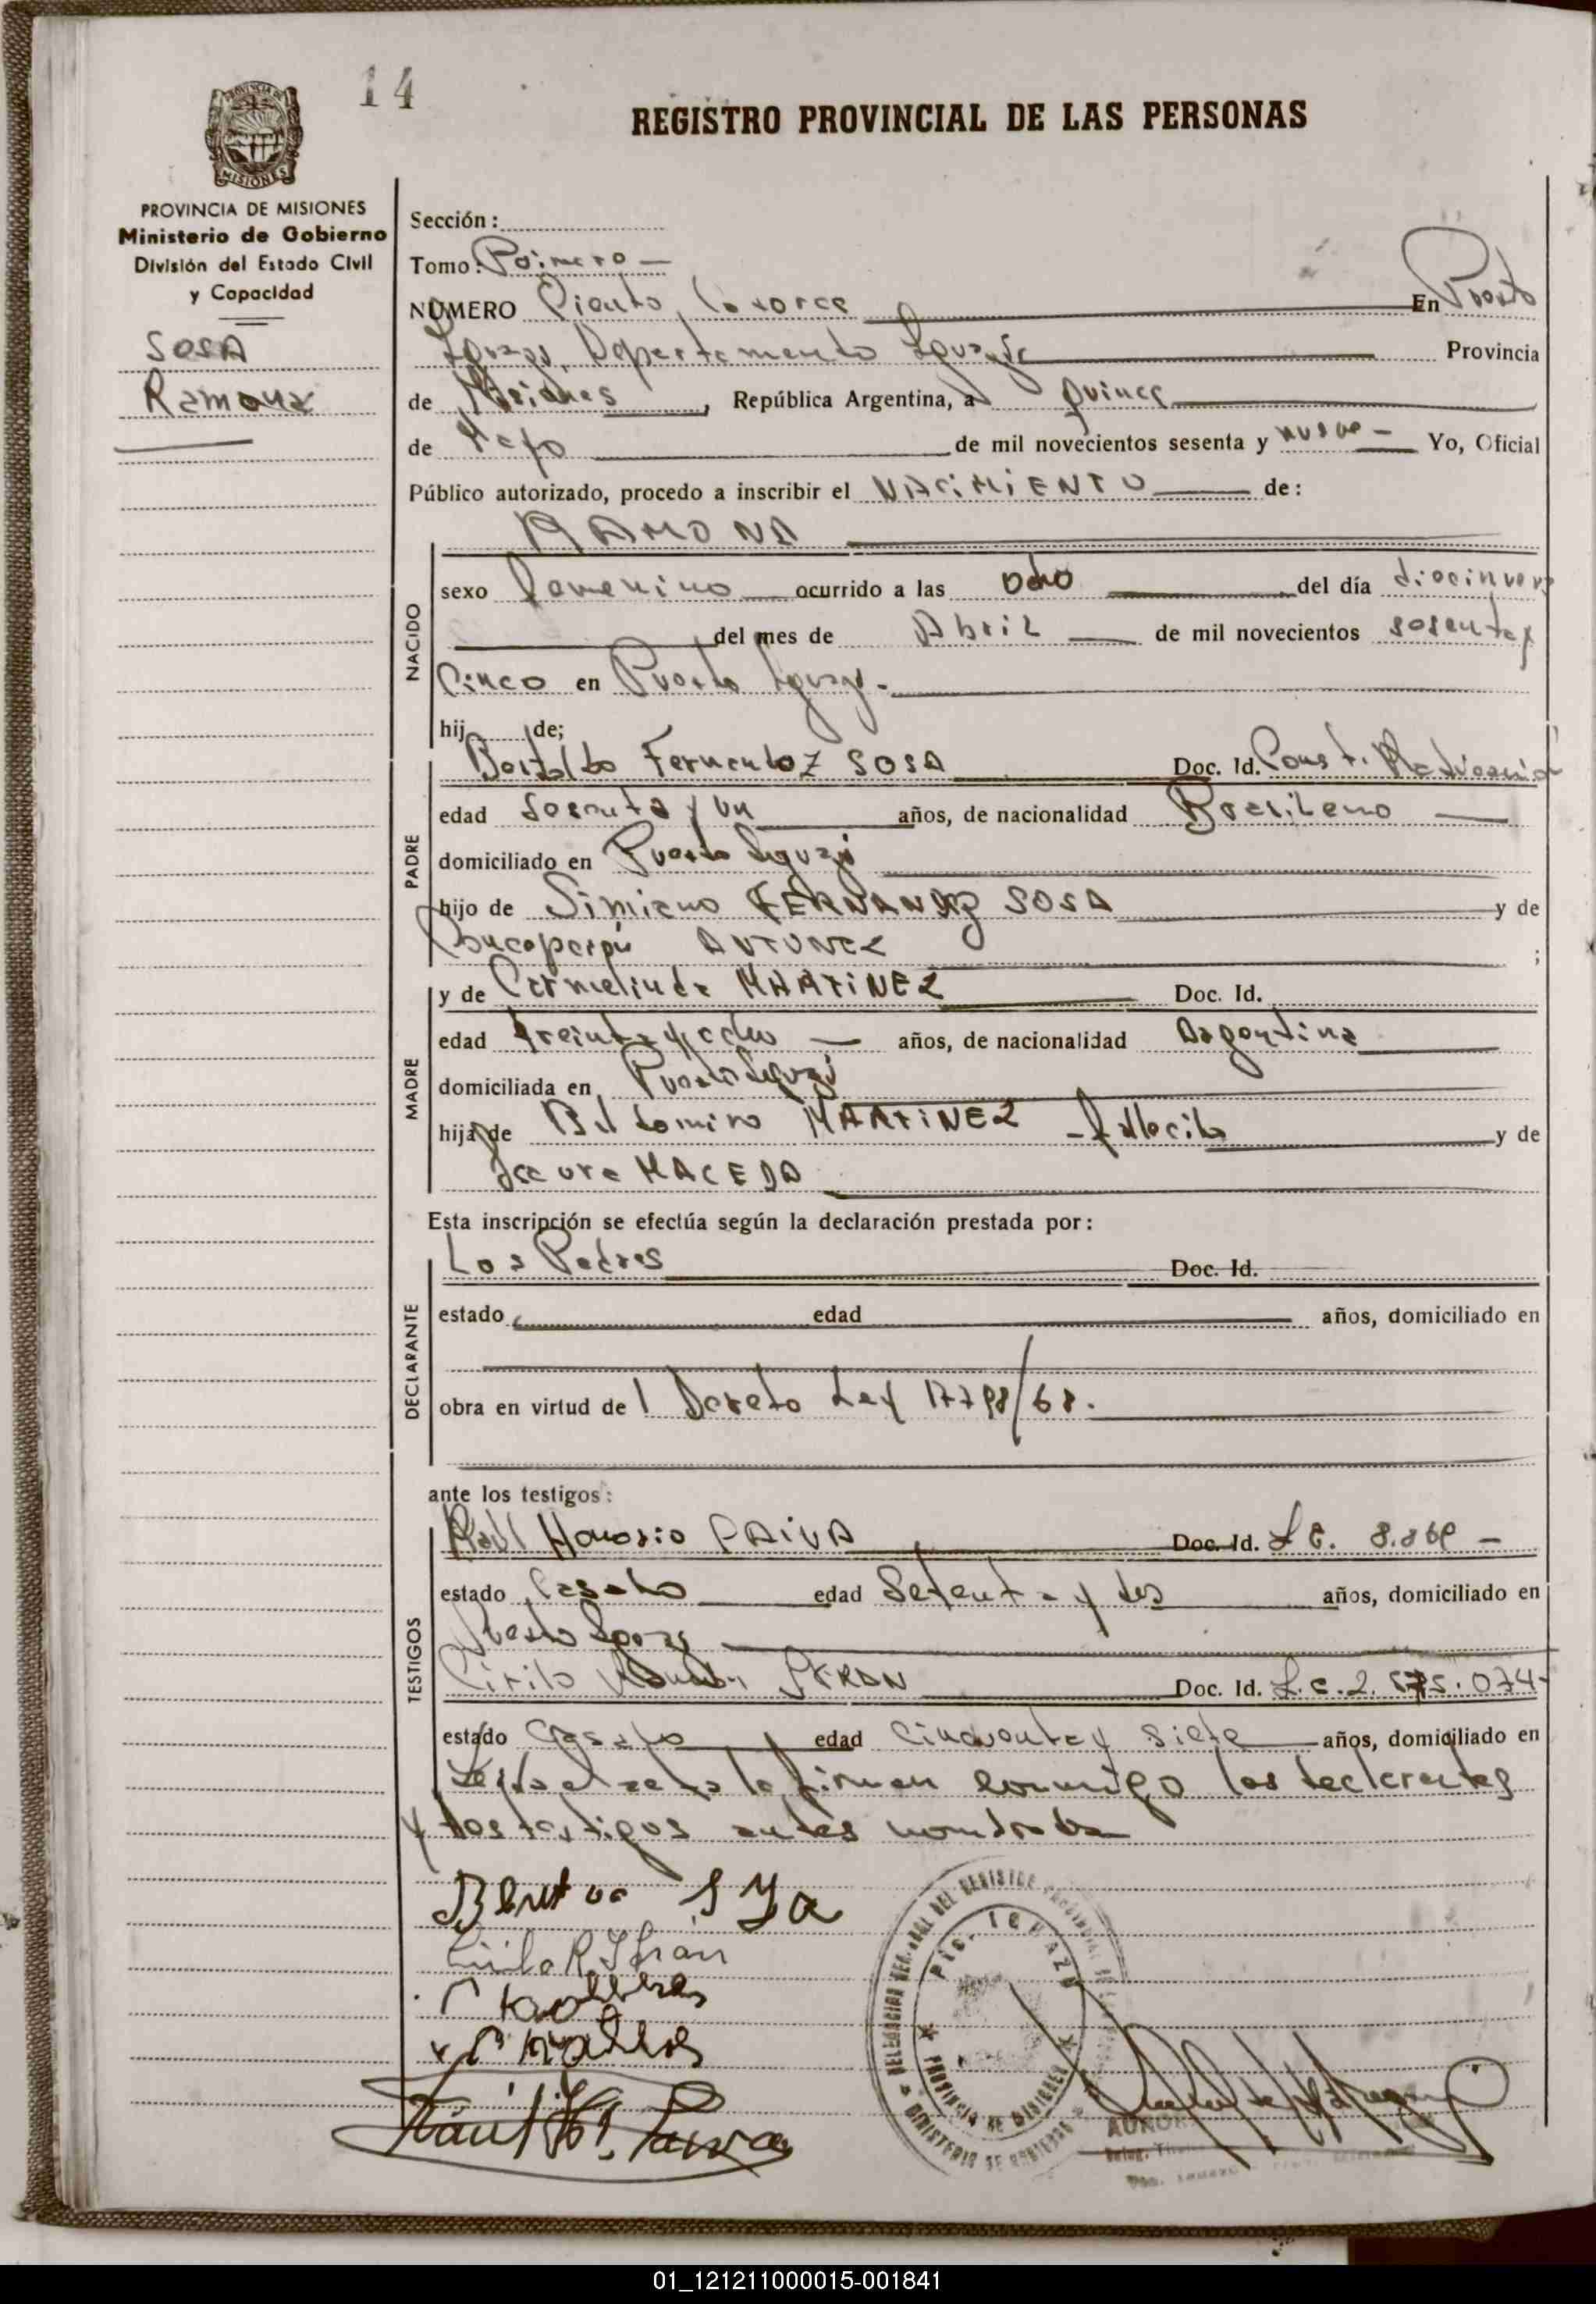 14
REGISTRO PROVINCIAL DE LAS PERSONAS
PROVINCIA DE MISIONES
Ministerio de Gobierno
División del Estado Civil
y Capacidad
SOSA
Ramona
Sección:
Tomo: Primero —
NÚMERO Ciento Catorce En Puerto
Iguazú, Departamento Iguazú Provincia
de Misiones, República Argentina, a Quince
de Mayo de mil novecientos sesenta y nueve — Yo, Oficial
Público autorizado, procedo a inscribir el NACIMIENTO de:
RAMONA
NACIDO
sexo Femenino ocurrido a las ocho del día diecinueve
del mes de Abril de mil novecientos sesenta y
Cinco en Puerto Iguazú.
hij de;
PADRE
Fernandez SOSA Doc. Id. Const.
edad Sesenta y un años, de nacionalidad Brasileno
domiciliado en Puerto Iguazú
hijo de Simiano FERNANDEZ SOSA y de
ANTUNEZ ;
MADRE
y de Carmelinda MARTINEZ Doc. Id.
edad treinta y ocho — años, de nacionalidad Argentina
domiciliada en Puerto Iguazú
hija de MARTINEZ - fallecido y de
MACEDA
Esta inscripción se efectúa según la declaración prestada por:
DECLARANTE
Los Padres Doc. Id.
estado edad años, domiciliado en
obra en virtud de l Decreto Ley 17798/68.
ante los testigos:
TESTIGOS
Raúl Honorio PAIVA Doc. Id. L E.
estado Casado edad Setenta y dos años, domiciliado en
Puerto Iguazú
Cirilo Doc. Id. L.E. 2. 575.074-
estado Casado edad Cincuenta y siete años, domiciliado en
Leida el acta la firman conmigo los declarantes
y los testigos antes nombrados
DELEGACION DEL REGISTRO PROVINCIAL
PTO. IGUAZU
PROVINCIA DE MISIONES
MINISTERIO DE GOBIERNO
01_121211000015-001841